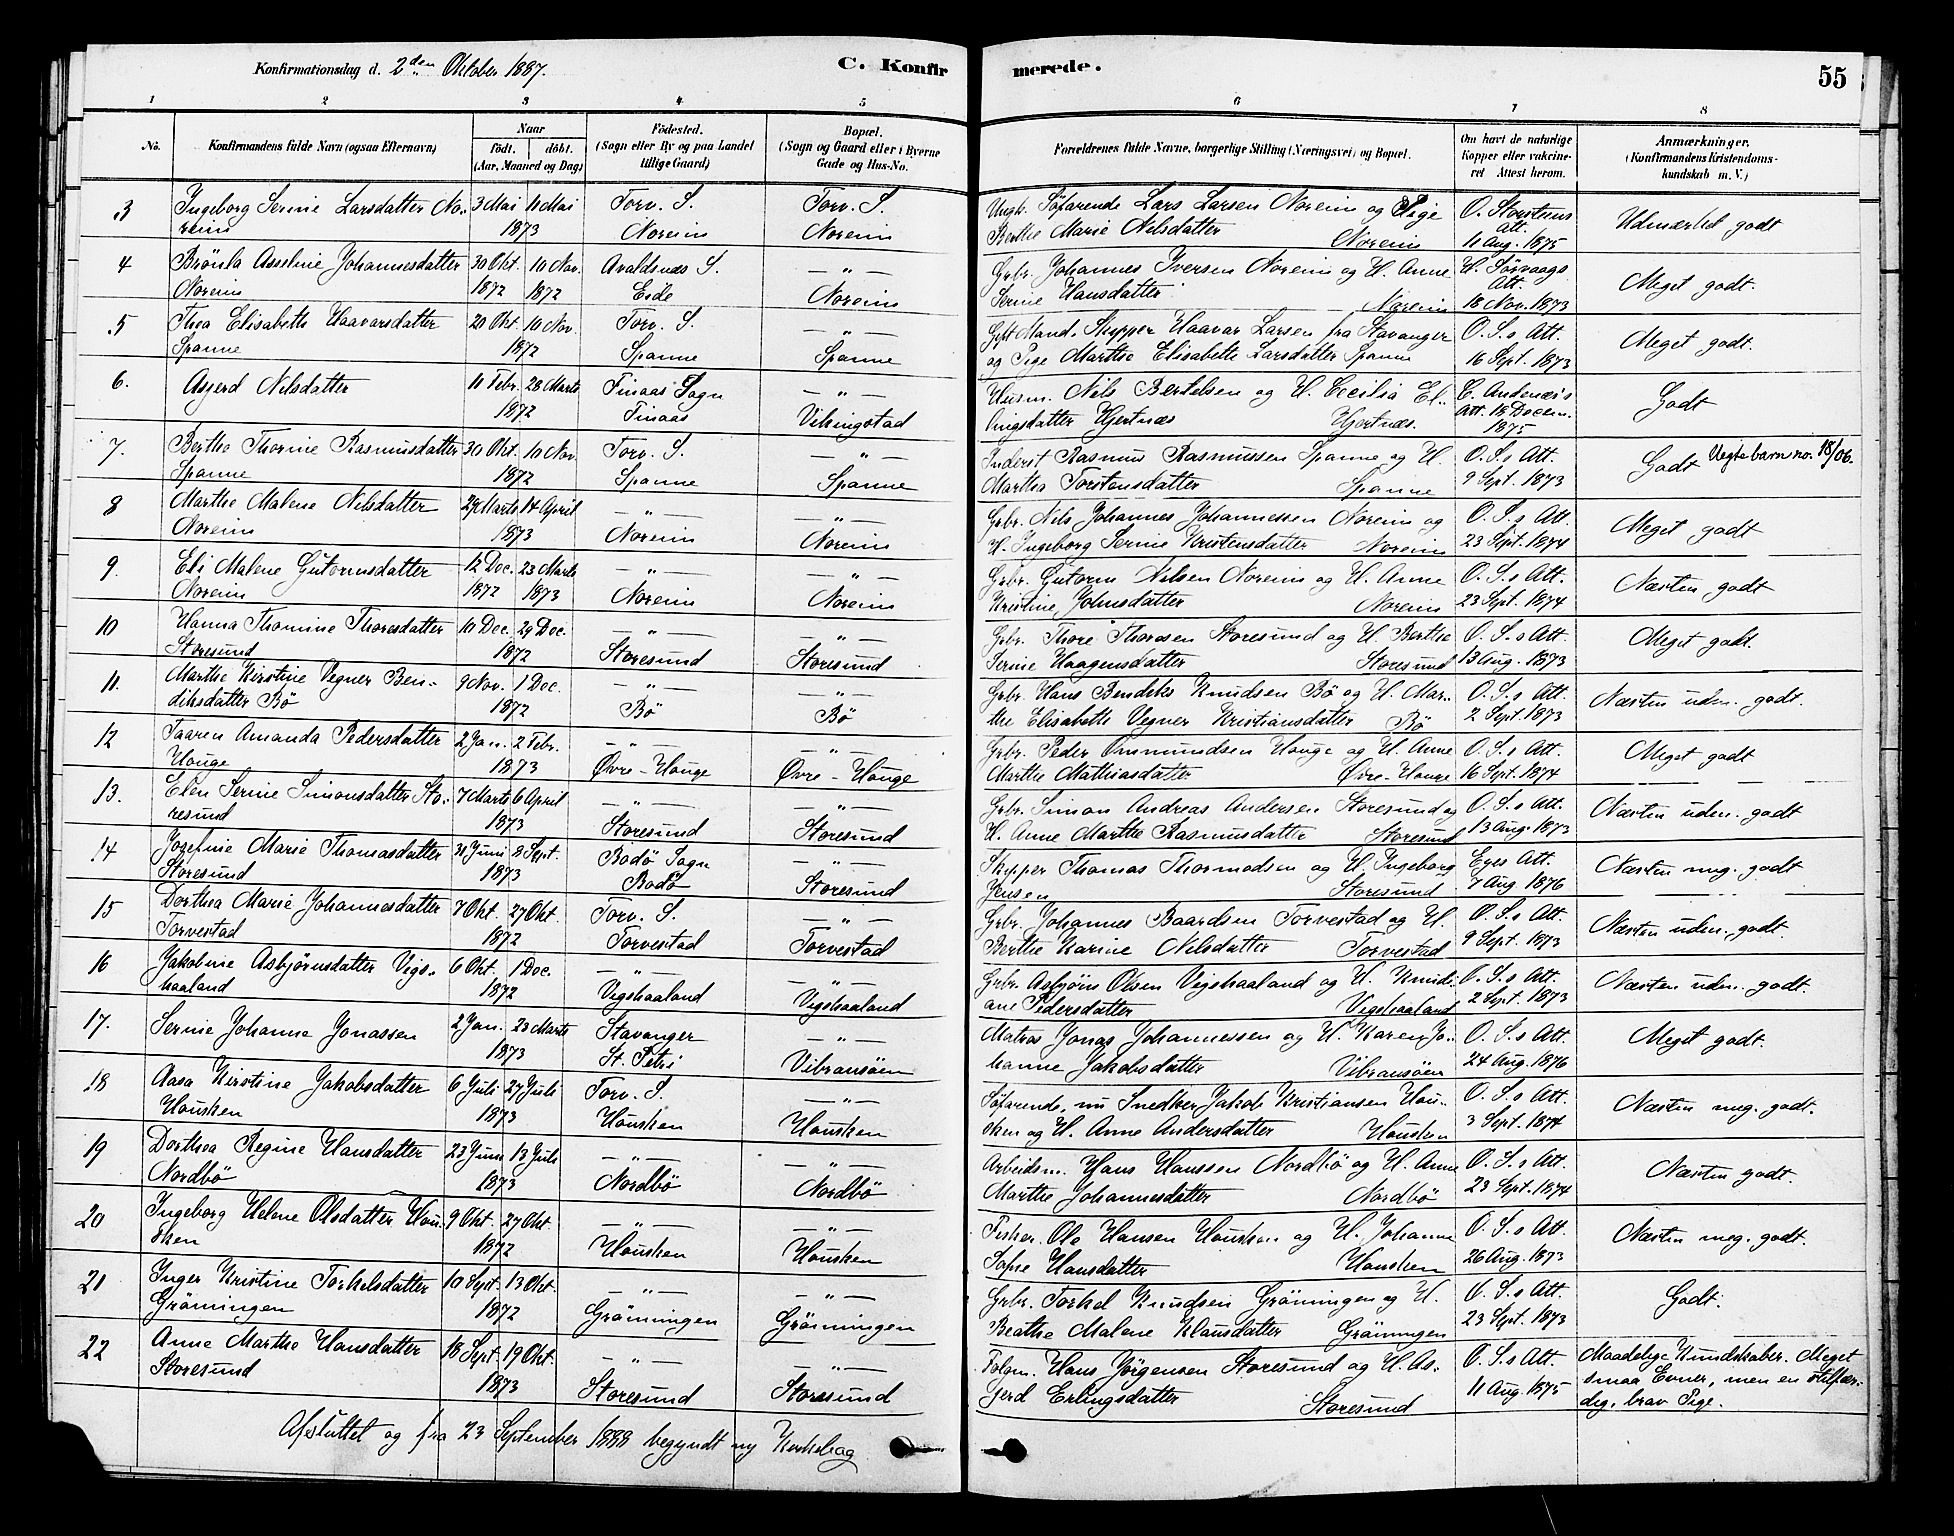 Konfirmationsdag d. 2den Oktober 1887.
C. Konfirmerede.
55
1 2 3 4 5 6 7 8
No.
Konfirmandens fulde Navn (ogsaa Efternavn)
Naar
födt. döbt.
(Aar, Maaned og Dag)
Födested.
(Sogn eller By og paa Landet
tillige Gaard)
Bopæl.
(Sogn og Gaard eller i Byerne
Gade og Hus-No.
Forældrenes fulde Navne, borgerlige Stilling (Næringsvei) og Bopæl.
Om havt de naturlige
Kopper eller vakcine-
ret Attest herom.
Anmærkninger.
(Konfirmandens Kristendoms-
kundskab m. V.)
3 Ingeborg Serine Larsdatter No- 3 Mai 11 Mai Torv. S. Torv. S. Ungk. Söfarende Lars Larsen Noreim og Pige O. Storstens Udmærket godt
reim 1873 Noreim Noreim Berthe Marie Nilsdatter Noreim Att. 11 Aug. 1875
4 Brönla Asseline Johannesdatter 30 Okt. 10 Nov. Avaldsnæs S. — " — Grbr. Johannes Iversen Noreim og H. Anne H. Sörvaags Att. Meget godt.
Noreim 1872 1872 Eide Noreim Serine Hansdatter Noreim 18 Nov. 1873
5 Thea Elisabeth Haavarsdatter 20 Okt. 10 Nov. Torv. S. — " — Gift Mand. Skipper Haavar Larsen fra Stavanger O. S.s Att. Meget godt.
Spanne 1872 Spanne Spanne og Pige Marthe Elisabeth Larsdatter Spanne 16 Sept. 1873
6. Asgerd Nilsdatter 11 Febr. 28 Marts Tinaas Sogn — " — Husm. Nils Bertelsen og H. Cecilia El- C. Andenæs's Godt
1872 Tinaas Vikingstad lingsdatter Hjertnæs Hjertnæs. Att. 18 Decem. 1875
7. Berthe Thorine Rasmusdatter 30 Okt. 10 Nov. Torv. S. — " — Inderst Rasmus Rasmussen Spanne og H. O. S.s Att. Godt Uegte barn no. 18/06.
Spanne 1872 Spanne Spanne Martha Torstensdatter Spanne 9 Sept. 1873
8 Marthe Malene Nilsdatter 29 Marts 14 April — " — — " — Grbr. Nils Johannes Johannessen Noreim og O. S.s Att. Meget godt
Noreim 1873 Noreim Noreim H. Ingeborg Serine Kristensdatter Noreim 23 Sept. 1874
9 Eli Malene Gutormsdatter 12 Dec. 23 Marts — " — — " — Grbr. Gutorm Nilsen Noreim og H. Anne O. S.s Att. Næsten godt
Noreim 1872 1873 Noreim Noreim Kristine Johnsdatter Noreim 23 Sept. 1874
10 Hanna Thomine Thoresdatter 10 Dec. 29 Dec. — " — — " — Grbr. Thore Thoresen Storesund og H. Berthe O. S.s Att. Meget godt.
Storesund 1872 Storesund Storesund Serine Haagensdatter Storesund 13 Aug. 1873
11. Marthe Kirstine Vegner Ben- 9 Nov. 1 Dec. — " — — " — Grbr. Hans Bendiks Knudsen Bö og H. Mar- O. S.s Att. Næsten uden. godt.
diksdatter Bö 1872 Bö Bö the Elisabeth Vegner Kristiansdatter Bö 2 Sept. 1873
12 Taaren Amanda Pedersdatter 2 Jan. 2 Febr. — " — — " — Grbr. Peder Ommundsen Hauge og H. Anne O. S.s Att. Meget godt
Hauge 1873 Øvre-Hauge Øvre-Hauge Marthe Mathiasdatter Øvre-Hauge 16 Sept. 1874
13. Elen Serine Simonsdatter Sto- 7 Marts 6 April — " — — " — Grbr. Simon Andreas Andersen Storesund og O. S.s Att. Næsten uden. godt
resund 1873 Storesund Storesund H. Anne Marthe Rasmusdatter Storesund 13 Aug. 1873
14 Josefine Marie Thomasdatter Juni 8 Sept. Bodø Sogn — " — Skipper Thomas Thormodsen og H. Ingeborg Eges Att. Næsten meg. godt
Storesund 1873 Bodø Storesund Jensen Storesund 7 Aug. 1876
15 Dorthea Marie Johannesdatter 7 Okt. 27 Okt. Torv. S. — " — Grbr. Johannes Baardsen Torvestad og H. O. S.s Att. Næsten uden. godt.
Torvestad 1872 Torvestad Torvestad Berthe Karine Nilsdatter Torvestad 9 Sept. 1873
16 Jakobine Asbjörnsdatter Vigs- 6 Okt. 1 Dec. — " — — " — Grbr. Asbjörn Olsen Vigshaaland og H. Knudi- O. S.s Att. Næsten uden. godt.
haaland 1872 Vigshaaland Vigshaaland ane Pedersdatter Vigshaaland 2 Sept. 1873
17. Serine Johanne Jonassen 2 Jan. 23 Marts Stavanger — " — Matros Jonas Johannessen og H. Karen Jo- O. S.s Att. Meget godt.
1873 St. Petri Vibransöen hanne Jakobsdatter Vibransöen 24 Aug. 1876
18 Aasa Kirstine Jakobsdatter 6 Juli 27 Juli Torv. S. — " — Söfarende, nu Snedker Jakob Kristiansen Hau- O. S.s Att. Næsten meg. godt.
Housken 1873 Housken Housken sken og H. Anne Andersdatter Housken 3 Sept. 1874
19 Dorthea Regine Hansdatter 23 Juni 13 Juli — " — — " — Arbeidsm. Hans Hanssen Nordbö og H. Anne O. S.s Att. Næsten godt.
Nordbö 1873 Nordbö Nordbö Marthe Johannesdatter Nordbö 23 Sept. 1874
20 Ingeborg Helene Olsdatter Hou- 9 Okt. 27 Okt. — " — — " — Fisker. Ole Hansen Housken og H. Johanne O. S.s Att. Næsten meg. godt.
sken 1872 Housken Housken Sofie Hansdatter Housken 26 Aug. 1873
21 Inger Kristine Torkelsdatter 10 Sept. 13 Okt. — " — — " — Grbr. Torkel Knudsen Gröningen og H. O. S.s Att. Godt.
Gröningen 1872 Gröningen Gröningen Beathe Malene Klausdatter Gröningen 23 Sept. 1873
22 Anne Marthe Hansdatter 18 Sept. 19 Okt. — " — — " — Folgm. Hans Jörgensen Storesund og H. As- O. S.s Att. Maadelige Kundskaber. Meget
Storesund 1873 Storesund Storesund gerd Erlingsdatter Storesund 11 Aug. 1875 smaa Evner, men en stilfær-
dig, brav Pige.
Afsluttet og fra 23 September 1888 begyndt ny Kirkebog